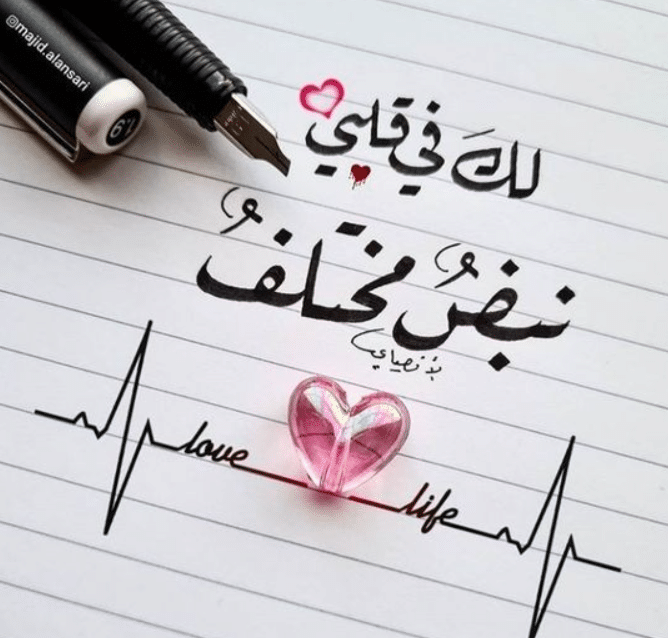 @majid.alansari
6.1
لكَ في قلبي
نبضٌ مختلفٌ
love life